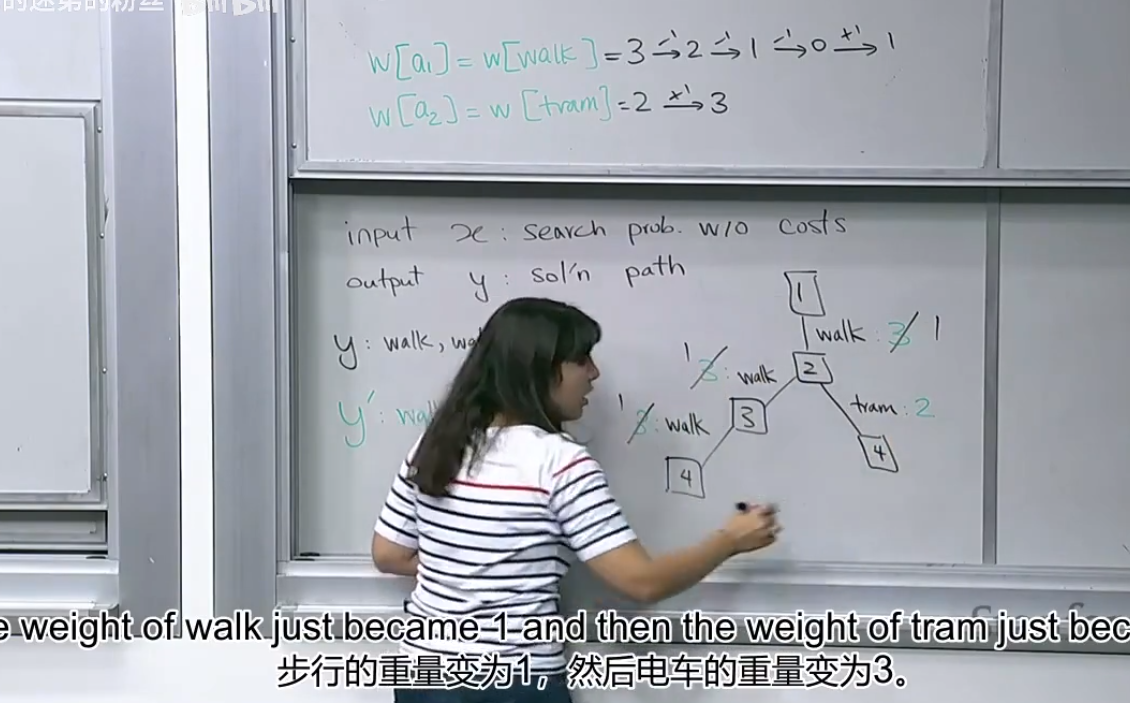 的迷弟的粉丝 bilibili
w[a₁] = w[walk] = 3 →⁻¹ 2 →⁻¹ 1 →⁻¹ 0 →⁺¹ 1
w[a₂] = w[tram] = 2 →⁺¹ 3
input x : search prob. w/o costs
output y : sol'n path
1
walk : 3 1
y : walk,
1 3 : walk
2
tram : 2
y′ :
1 3 : walk
3
4
4
e weight of walk just became 1 and then the weight of tram just bec
步行的重量变为1，然后电车的重量变为3。